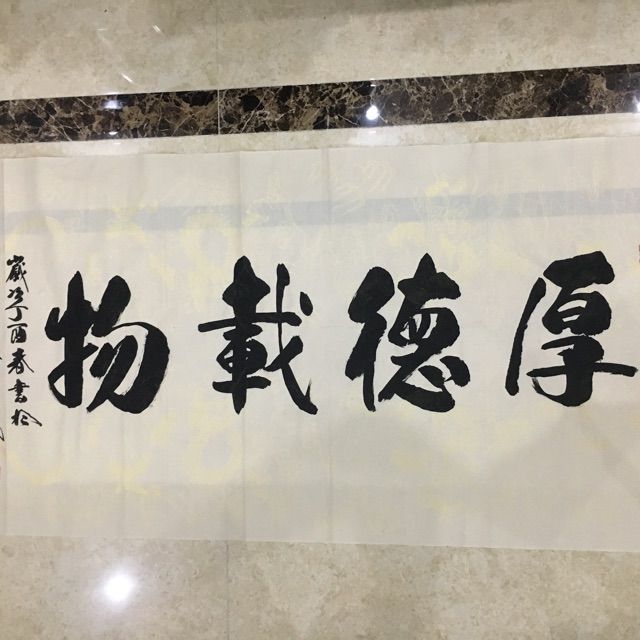 厚德載物
歲次丁酉春書於